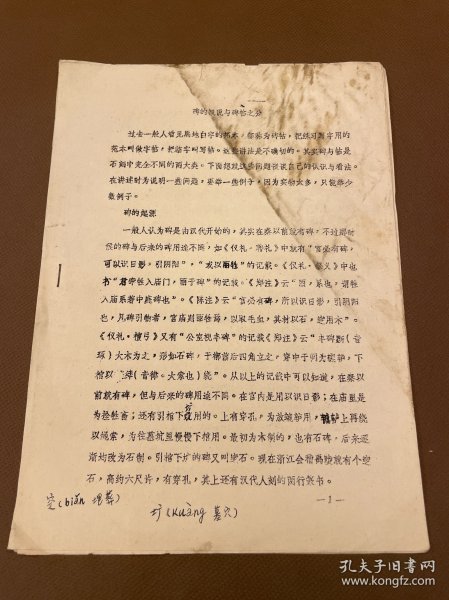 碑的概说与碑帖之分
过去一般人看见黑地白字的拓本,都称为碑帖,把练习写字用的
范本叫做字帖,把临字叫写帖。这些讲法是不确切的。其实碑与帖是
石刻中完全不同的两大类。下面想就这些问题谈谈自己的认识与看法。
在讲述时为说明一些问题,要举一些例子,因为实物太多,只能举少
数例子。
碑的起源
一般人认为碑是由汉代开始的,其实在秦以前就有碑,不过那时
候的碑与后来的碑用途不同,如《仪礼·聘礼》中就有“宫必有碑,
可以识日影,引阴阳”,“或以丽牲”的记载。《仪礼·祭义》中也
书“君牵牲入庙门,丽于碑”的记载。《郑注》云“丽,系也,谓牲
入庙系着中庭碑也”。《陈注》云“宫必有碑,所以识日影,引阴阳
也,凡碑引物者,宫庙则丽牲焉,以取毛血,其材以石,窆用木”。
《仪礼·檀弓》又有“公室视丰碑”的记载《郑注》云“丰碑斲(音
琢)大木为之,形如石碑,于椁前后四角立之,穿中于间为碌轳,下
棺以繂(音律。大索也)绕”。从以上的记载中可以知道,在秦以
前就有碑,但与后来的碑用途不同。在宫内是用以识日影;在庙里是
为拴牲畜;还有引棺下窆用的。上有穿孔,为放辘轳用,辘轳上再绕
以绳索,为往墓坑里慢慢下棺用。最初为木制的,也有石碑,后来逐
渐均改为石制。引棺下圹的碑又叫窆石。现在浙江会稽禹陵就有个窆
石,高约六尺许,有穿孔,其上还有汉代人刻的阴行篆书。
—1—
窆(biǎn 埋葬)
圹(kuàng 墓穴)
孔夫子旧书网
www.kongfz.com